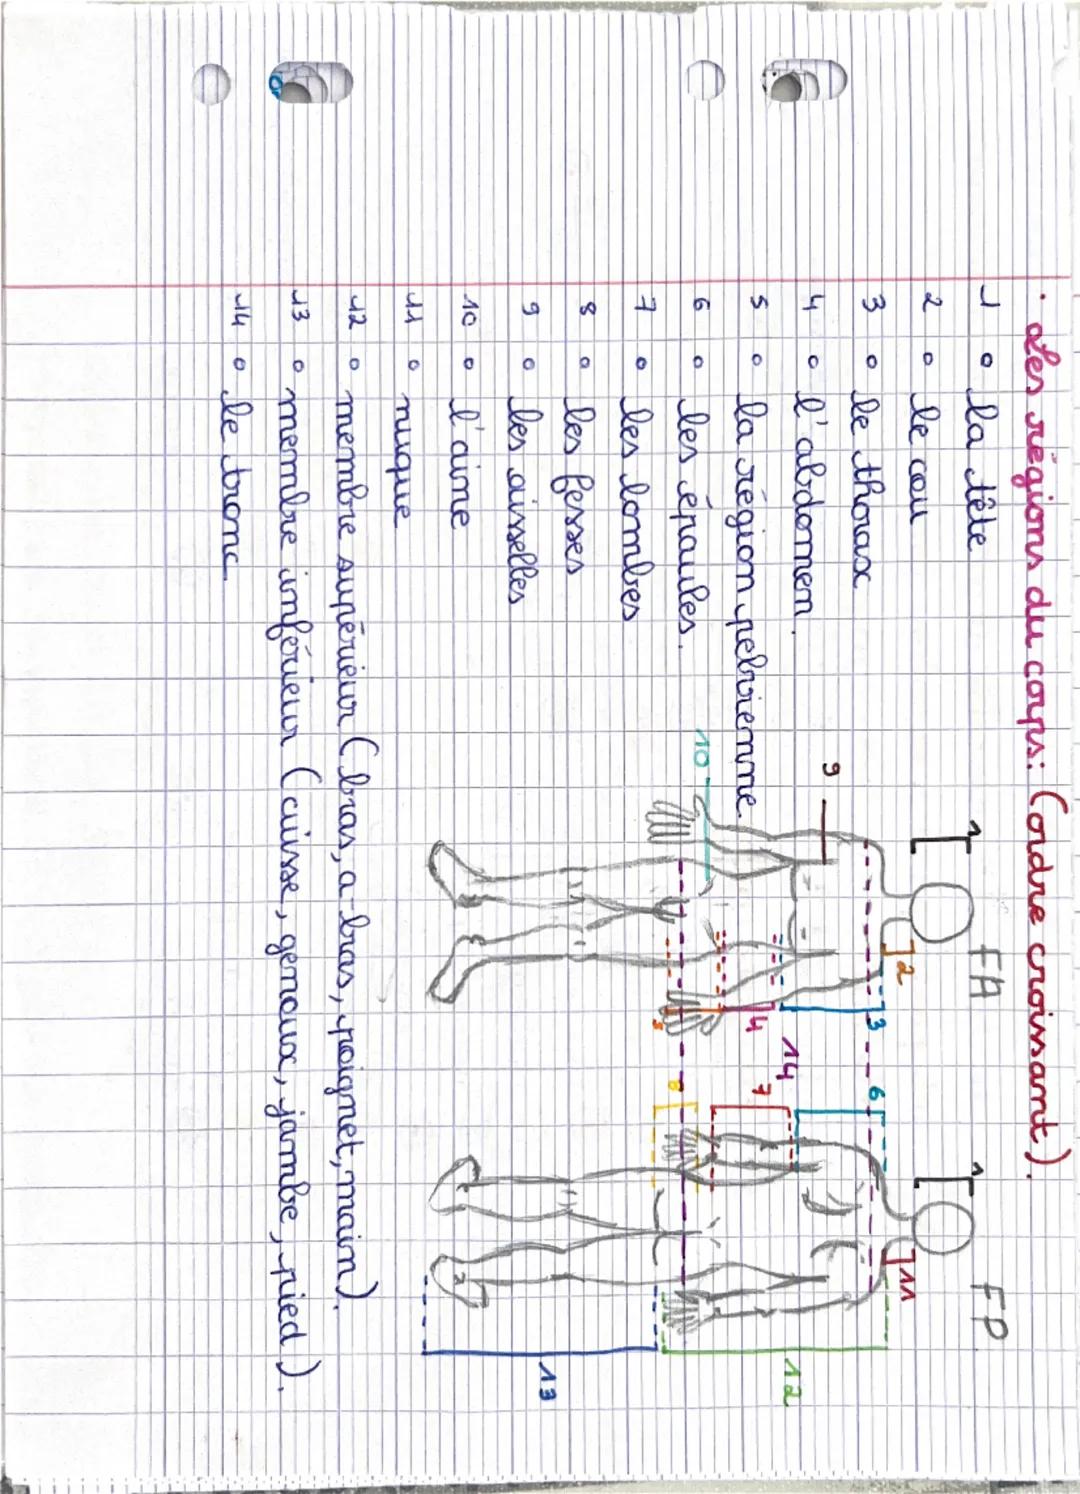 · Les régions du corps: (ordre croissant).
1 o la tête
2 o le cou
3 o le thorax
4 o l'abdomen.
5 o la région pelvienne.
6 o les épaules.
7 o les lombes
8 o les fesses
9 o les aisselles
10 o l'aine
11 o nuque
12 o membre supérieur (bras, a-bras, poignet, main).
13 o membre inférieur (cuisse, genoux, jambe, pied).
14 o le tronc
FA
1
2
3
4
5
9
10
14
FP
1
11
6
7
8
12
13